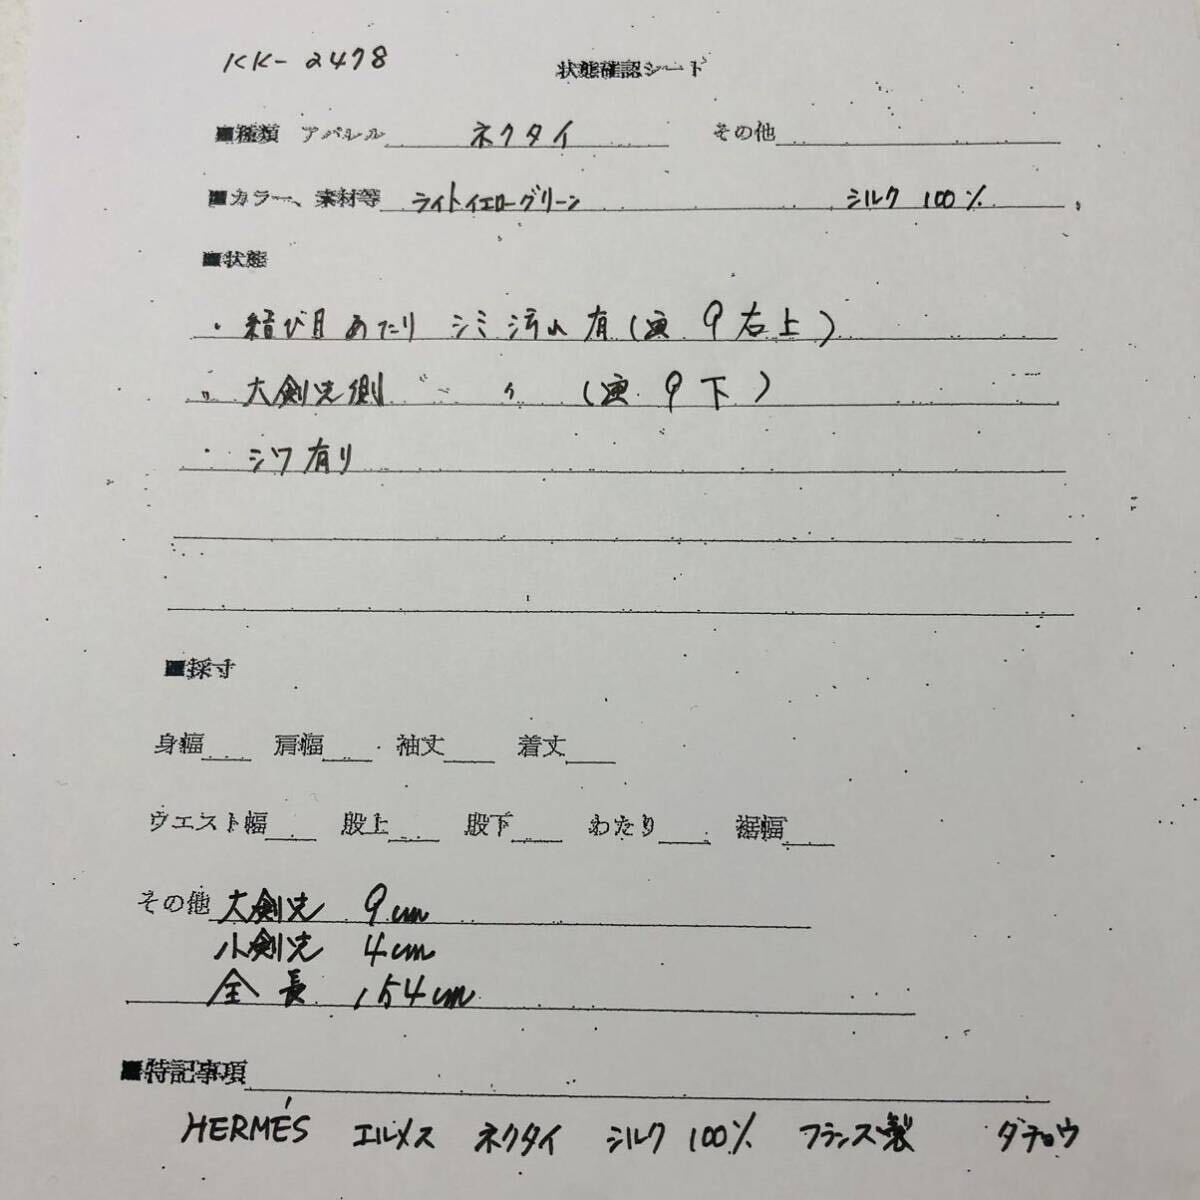 KK-2478 状態確認シート
■種類 アパレル ネクタイ その他
■カラー、素材等 ライトイエローグリーン シルク 100%
■状態
・結び目あたり シミ 汚れ 有(画 9 右上)
〃 大剣先側 〃 (画 9 下)
・シワ有り
■採寸
身幅 肩幅 袖丈 着丈
ウエスト幅 股上 股下 わたり 裾幅
その他 大剣先 9cm
小剣先 4cm
全長 154cm
■特記事項
HERMÉS エルメス ネクタイ シルク 100% フランス製 ダチョウ